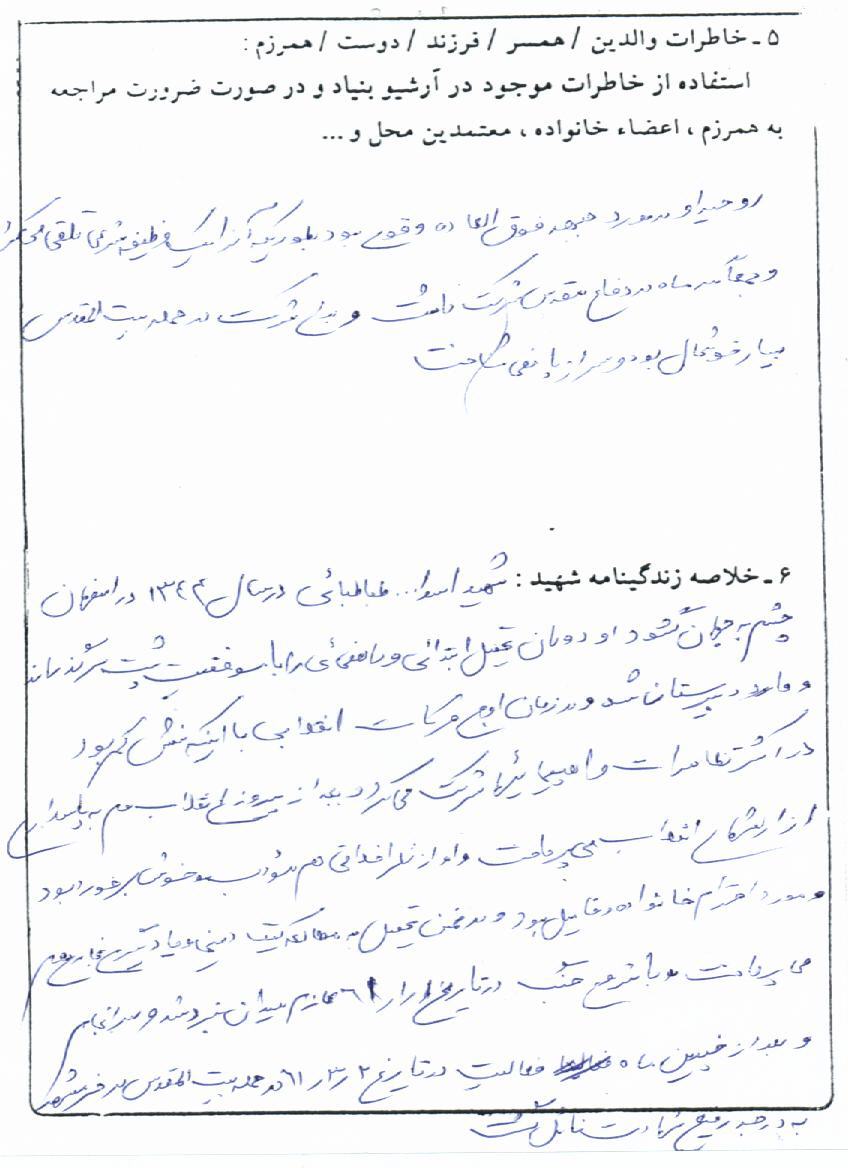 ۵ ـ خاطرات والدین / همسر / فرزند / دوست / همرزم :
استفاده از خاطرات موجود در آرشیو بنیاد و در صورت ضرورت مراجعه
به همرزم ، اعضاء خانواده ، معتمدین محل و ...
روحیه او در مورد جبهه فوق العاده قوی بود بطوریکه آنرا یک وظیفه شرعی تلقی میکرد
و جمعاً سه ماه در دفاع مقدس شرکت داشت و برای شرکت در حمله بیت المقدس
بسیار خوشحال بود و سر از پا نمی شناخت
۶ ـ خلاصه زندگینامه شهید : شهید اسدا... طباطبائی در سال ۱۳۴۴ در اصفهان
چشم به جهان گشود او دوران تحصیل ابتدائی و راهنمائی را با موفقیت پشت سر گذراند
و وارد دبیرستان شد و در زمان اوج حرکات انقلابی با اینکه سنش کم بود
در اکثر تظاهرات و راهپیمائیها شرکت می کرد و بعد از پیروزی انقلاب هم به پاسداری
از ارزشهای انقلاب می پرداخت و او از نظر اخلاقی هم مؤدب و خوش برخورد بود
و مورد احترام خانواده و فامیل بود و در ضمن تحصیل به مطالعه کتب دینی و یادگیری
می پرداخت و با شروع جنگ در تاریخ ۶۱ عازم میدان نبرد شد و سرانجام
و بعد از چندین ماه فعالیت در تاریخ ۶۱/۳/۲ در حمله بیت المقدس در خرمشهر
به درجه رفیع شهادت نائل گشت